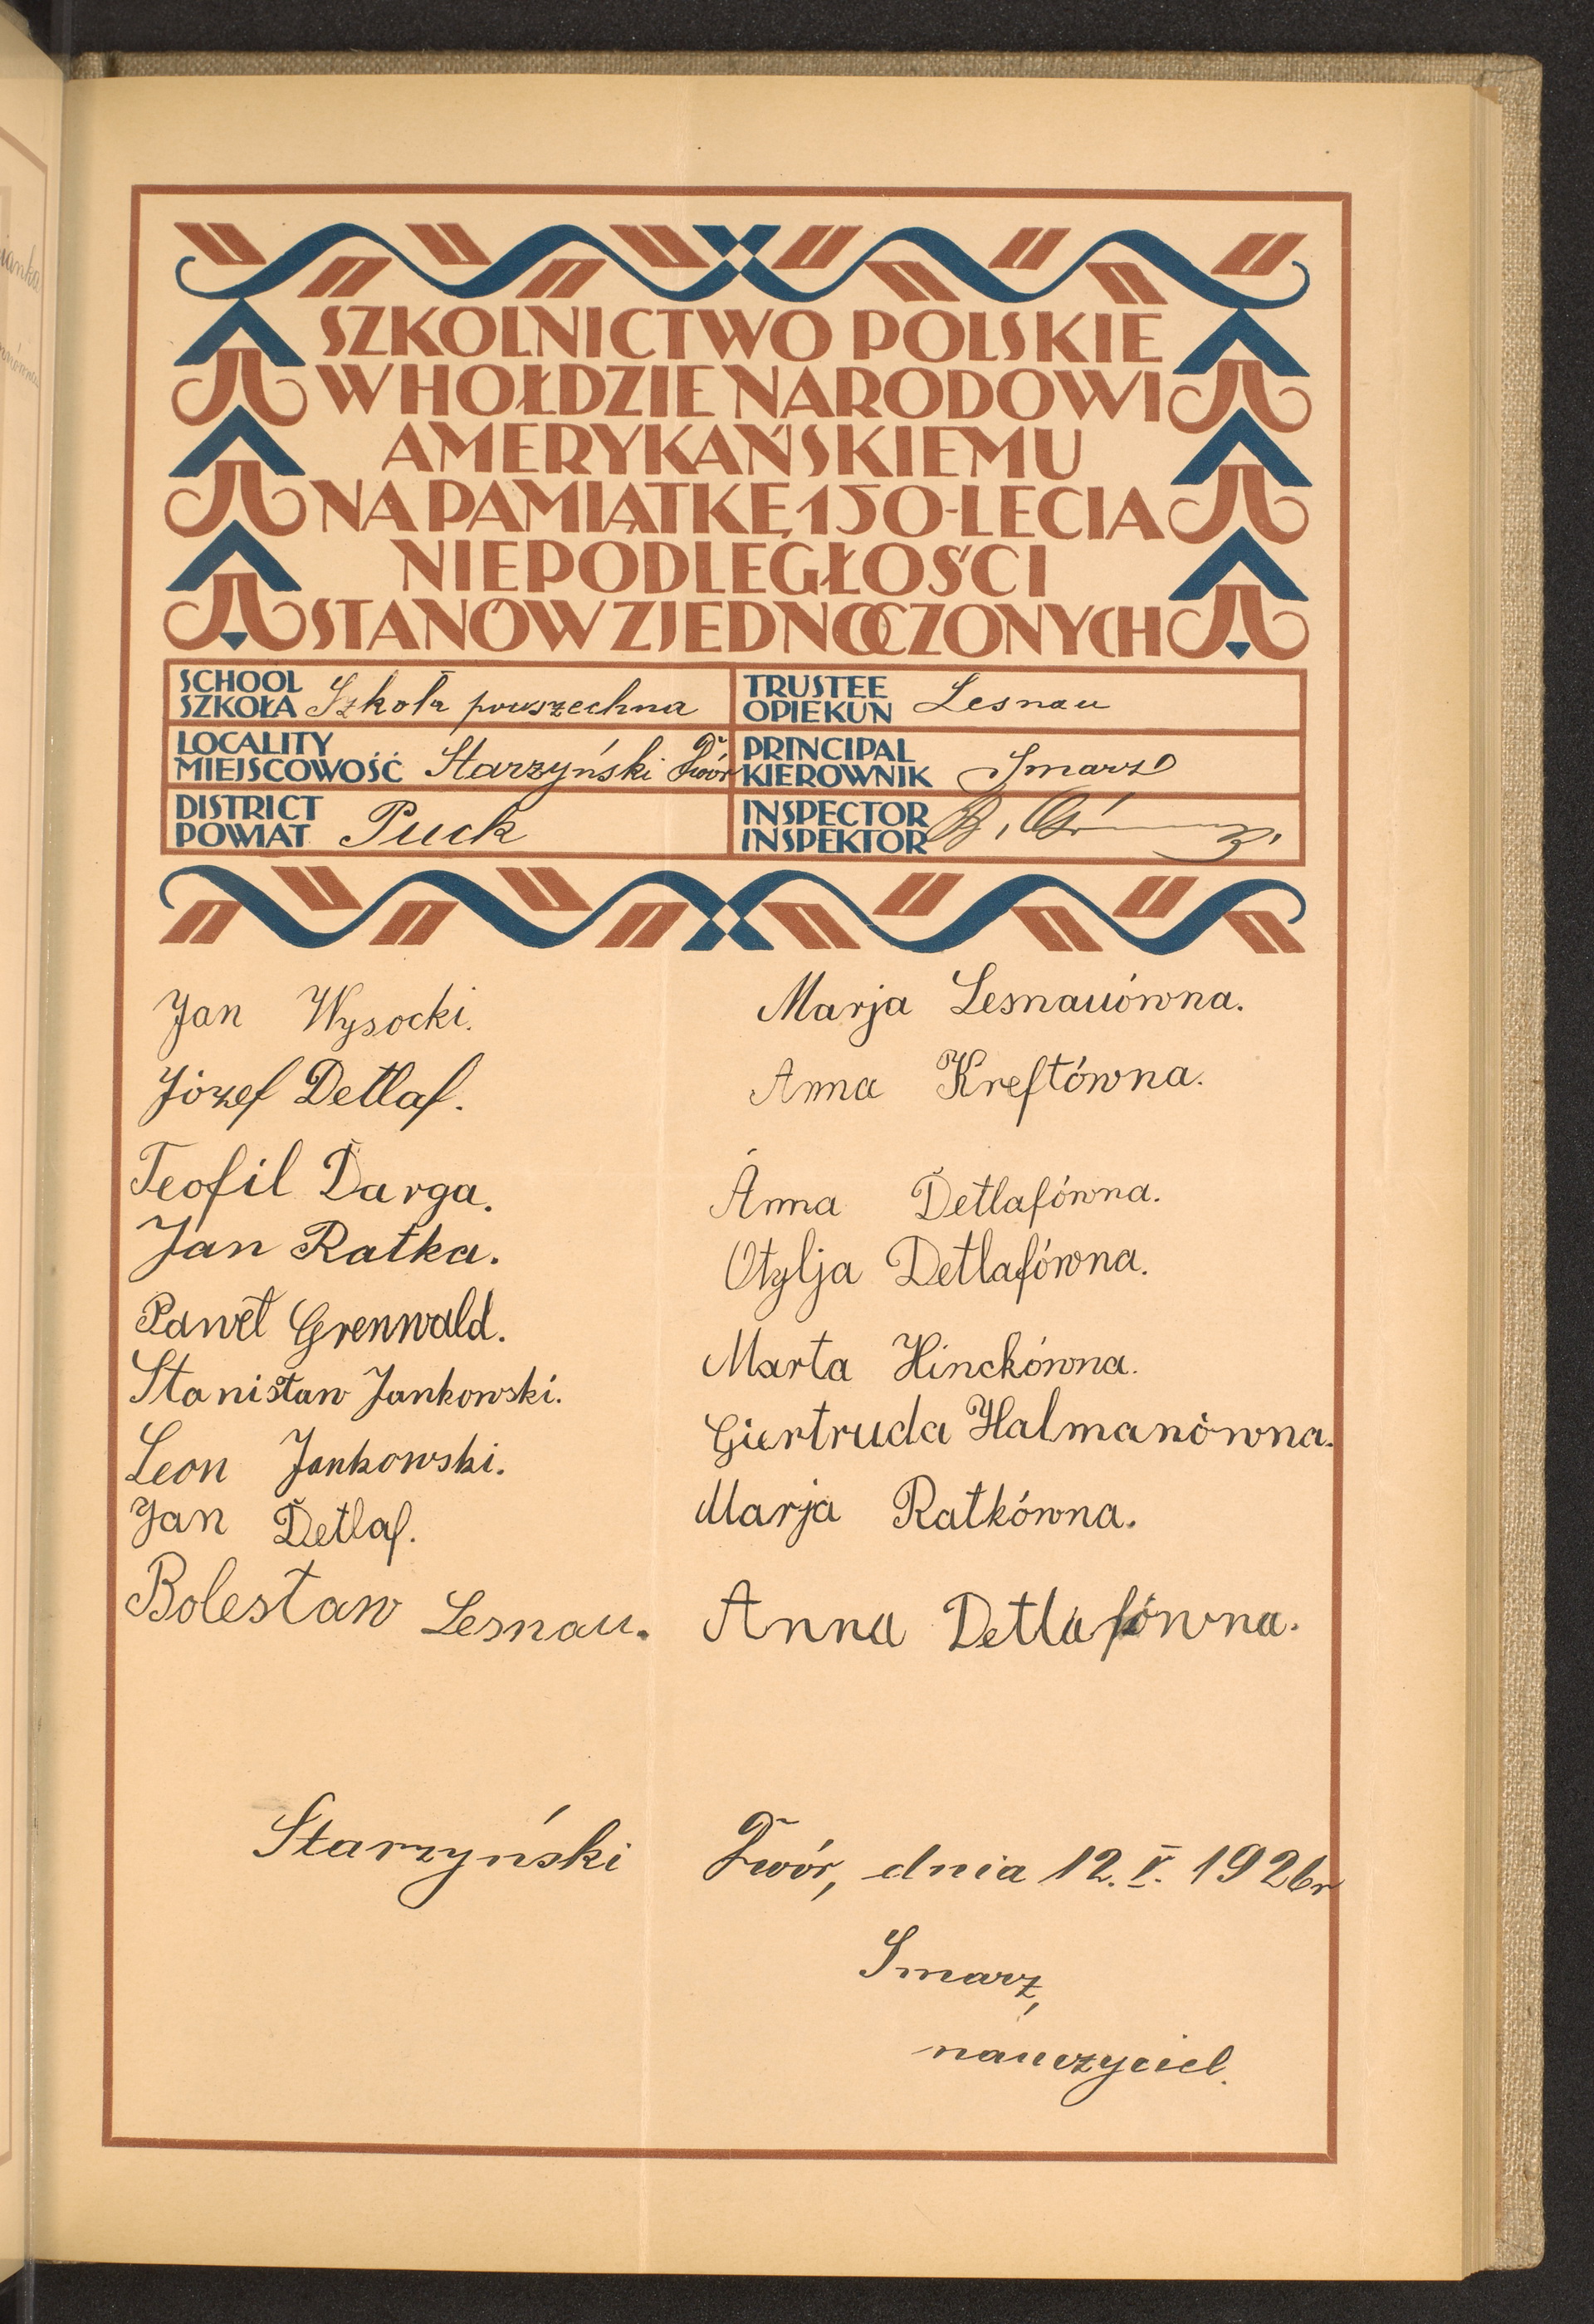 SZKOLNICTWO POLSKIE
W HOŁDZIE NARODOWI
AMERYKAŃSKIEMU
NA PAMIĄTKĘ 150-LECIA
NIEPODLEGŁOŚCI
STANÓW ZJEDNOCZONYCH
SCHOOL
SZKOŁA Szkoła powszechna
LOCALITY
MIEJSCOWOŚĆ Starzyński Dwór
DISTRICT
POWIAT Puck
TRUSTEE
OPIEKUN Lesnau
PRINCIPAL
KIEROWNIK Smarz
INSPECTOR
INSPEKTOR B.
Jan Wysocki.
Józef Detlaf.
Teofil Darga.
Jan Ratka.
Paweł Grenwald.
Stanisław Jankowski.
Leon Jankowski.
Jan Detlaf.
Bolesław Lesnau.
Marja Lesnauówna.
Anna Kreftówna.
Anna Detlafówna.
Otylja Detlafówna.
Marta Hinckówna.
Giertruda Halmanówna.
Marja Ratkówna.
Anna Detlafówna.
Starzyński Dwór, dnia 12. V. 1926r
Smarz,
nauczyciel.